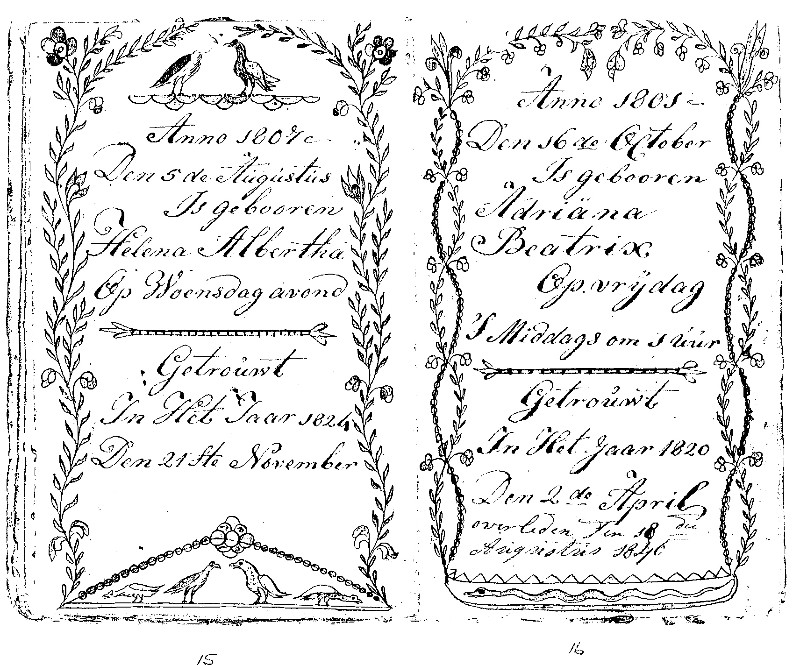 Anno 1807
Den 5 de Augustus
Is gebooren
Helena Albertha
Op Woensdag avond
Getrouwt
In Het Jaar 1824
Den 21 ste November
15
Anno 1801
Den 16 de October
Is gebooren
Adriana
Beatrix
Op vrijdag
'S Middags om 1 uur
Getrouwt
In Het Jaar 1820
Den 2 de April
overleden Den 18
Augustus 1846
16